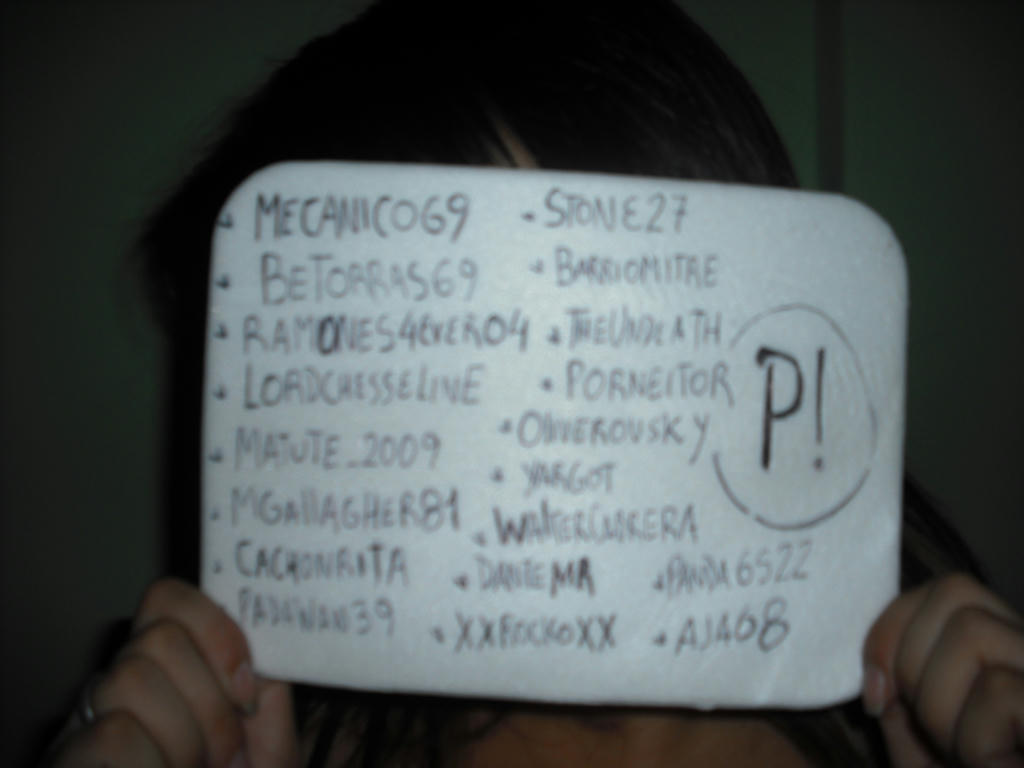 - MECANICO69
- BETORRAS69
- RAMONES4EVER04
- LORDCHESSELINE
- MATUTE_2009
- MGALLAGHER81
- CACHONRATA
PADAWAN39
- STONE27
- BARRIOMITRE
- THEUNDEATH
- PORNEITOR
- OLIVEROVSKY
- YARGOT
- WALTERCABRERA
- DANTEMR
- XXROCKOXX
- PANDA6522
- AJA68
P!